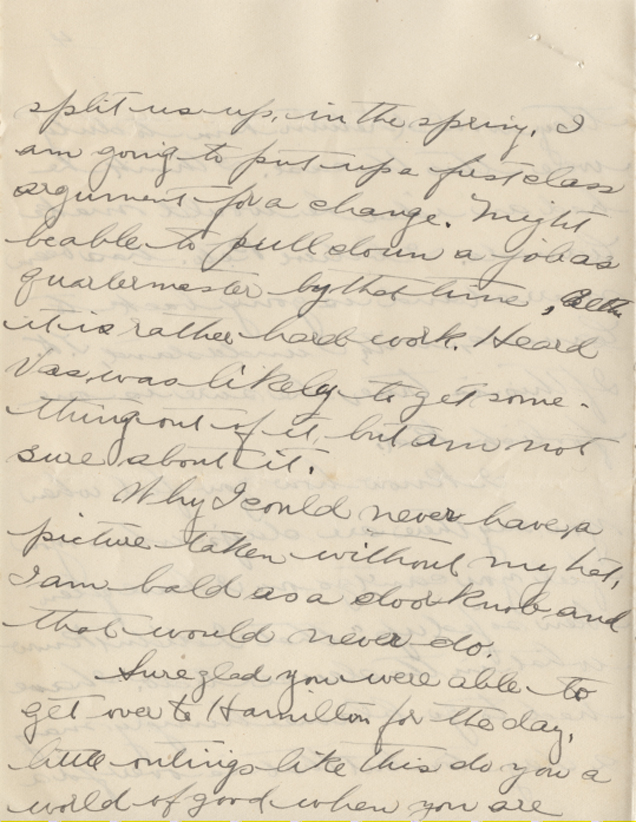 split us up, in the spring. I
am going to put up a first class
argument for a change. Might
be able to pull down a job as
quartermaster by that time,
it is rather hard work. Heard
Vas. was likely to get some-
thing out of it, but am not
sure about it.
Why I could never have a
picture taken without my hat,
I am bald as a door knob and
that would never do.
Sure glad you were able to
get over to Hamilton for the day,
little outings like this do you a
world of good when you are